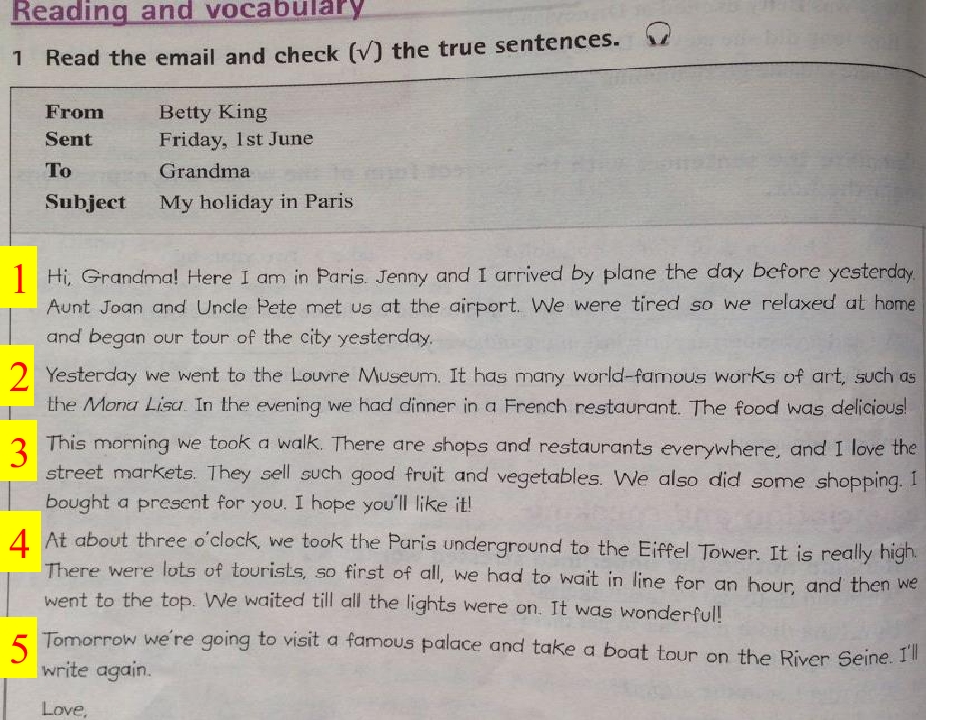 Reading and vocabulary
1 Read the email and check (√) the true sentences.
From Betty King
Sent Friday, 1st June
To Grandma
Subject My holiday in Paris
1 Hi, Grandma! Here I am in Paris. Jenny and I arrived by plane the day before yesterday.
Aunt Joan and Uncle Pete met us at the airport. We were tired so we relaxed at home
and began our tour of the city yesterday.
2 Yesterday we went to the Louvre Museum. It has many world-famous works of art, such as
the Mona Lisa. In the evening we had dinner in a French restaurant. The food was delicious!
3 This morning we took a walk. There are shops and restaurants everywhere, and I love the
street markets. They sell such good fruit and vegetables. We also did some shopping. I
bought a present for you. I hope you'll like it!
4 At about three o'clock, we took the Paris underground to the Eiffel Tower. It is really high.
There were lots of tourists, so first of all, we had to wait in line for an hour, and then we
went to the top. We waited till all the lights were on. It was wonderful!
5 Tomorrow we're going to visit a famous palace and take a boat tour on the River Seine. I'll
write again.
Love,